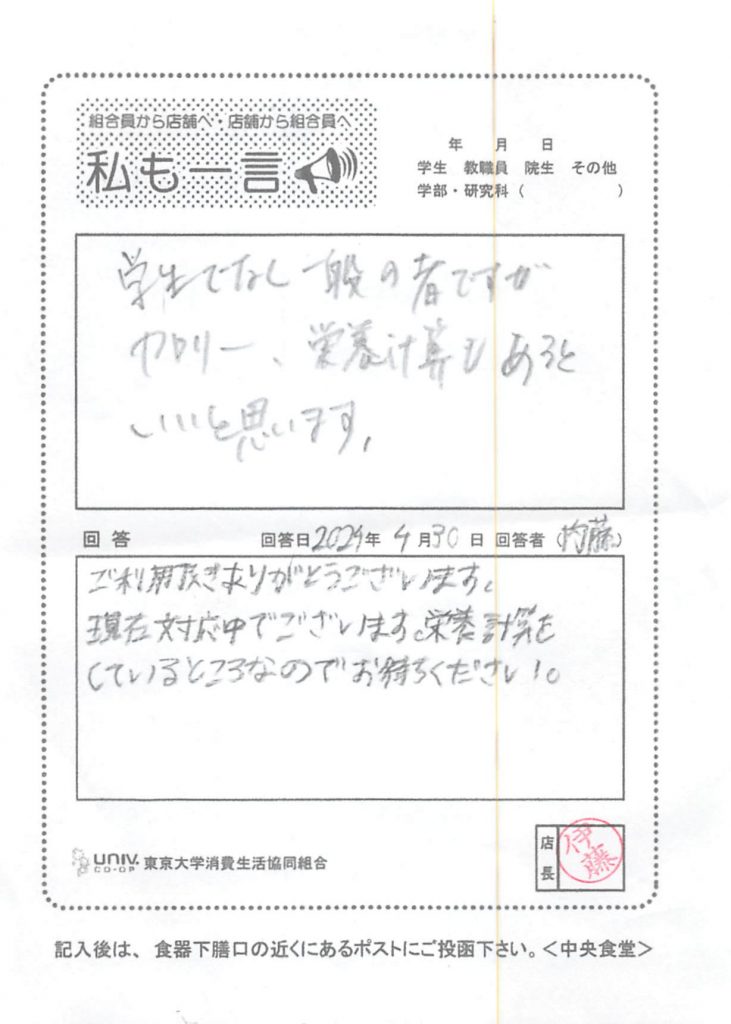 組合員から店舗へ・店舗から組合員へ
私も一言
年 月 日
学生 教職員 院生 その他
学部・研究科（ ）
学生でなし一般の者ですが
カロリー、栄養計算もあると
いいと思います。
回答 回答日2024年 4月30日 回答者（内藤）
ご利用頂きありがとうございます。
現在対応中でございます。栄養計算を
しているところなのでお待ちください。
UNIV. CO-OP 東京大学消費生活協同組合
店長 伊藤
記入後は、食器下膳口の近くにあるポストにご投函下さい。＜中央食堂＞